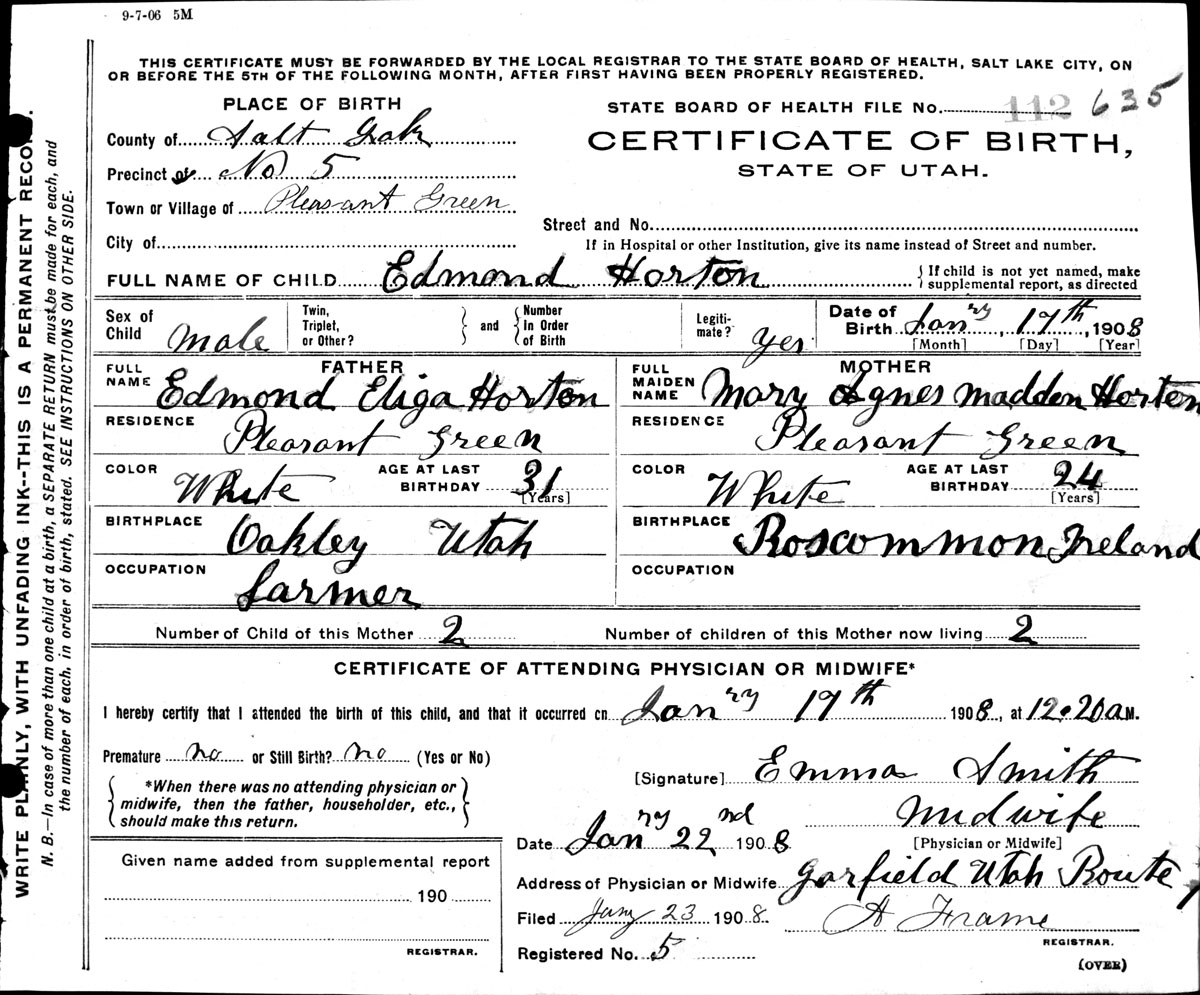 9-7-06 5M
THIS CERTIFICATE MUST BE FORWARDED BY THE LOCAL REGISTRAR TO THE STATE BOARD OF HEALTH, SALT LAKE CITY, ON
OR BEFORE THE 5TH OF THE FOLLOWING MONTH, AFTER FIRST HAVING BEEN PROPERLY REGISTERED.
PLACE OF BIRTH
STATE BOARD OF HEALTH FILE No. 112 635
County of Salt Lake
CERTIFICATE OF BIRTH,
STATE OF UTAH.
Precinct of No 5
Town or Village of Pleasant Green
Street and No.
City of
If in Hospital or other Institution, give its name instead of Street and number.
FULL NAME OF CHILD Edmond Horton
{ If child is not yet named, make
supplemental report, as directed
Sex of Child Male
Twin, Triplet, or Other? } and { Number In Order of Birth
Legiti-mate? yes
Date of Birth Janry, 17th, 1908
[Month] [Day] [Year]
FATHER
MOTHER
FULL NAME Edmond Eliga Horton
FULL MAIDEN NAME Mary Agnes Madden Horton
RESIDENCE Pleasant Green
RESIDENCE Pleasant Green
COLOR White AGE AT LAST BIRTHDAY 31 [Years]
COLOR White AGE AT LAST BIRTHDAY 24 [Years]
BIRTHPLACE Oakley Utah
BIRTHPLACE Roscommon Ireland
OCCUPATION farmer
OCCUPATION
Number of Child of this Mother 2 Number of children of this Mother now living 2
CERTIFICATE OF ATTENDING PHYSICIAN OR MIDWIFE*
I hereby certify that I attended the birth of this child, and that it occurred on Janry 17th 1908, at 12.20 a M.
Premature no or Still Birth? no (Yes or No)
[Signature] Emma Smith
{ *When there was no attending physician or
midwife, then the father, householder, etc.,
should make this return. }
Midwife
[Physician or Midwife]
Date Janry 22nd 1908
Given name added from supplemental report
190
REGISTRAR.
Address of Physician or Midwife Garfield Utah Route 1
Filed Jany 23 1908. A Frame
REGISTRAR.
Registered No. 5
(OVER)
WRITE PLAINLY, WITH UNFADING INK--THIS IS A PERMANENT RECORD.
N. B.—In case of more than one child at a birth, a SEPARATE RETURN must be made for each, and
the number of each, in order of birth, stated. SEE INSTRUCTIONS ON OTHER SIDE.